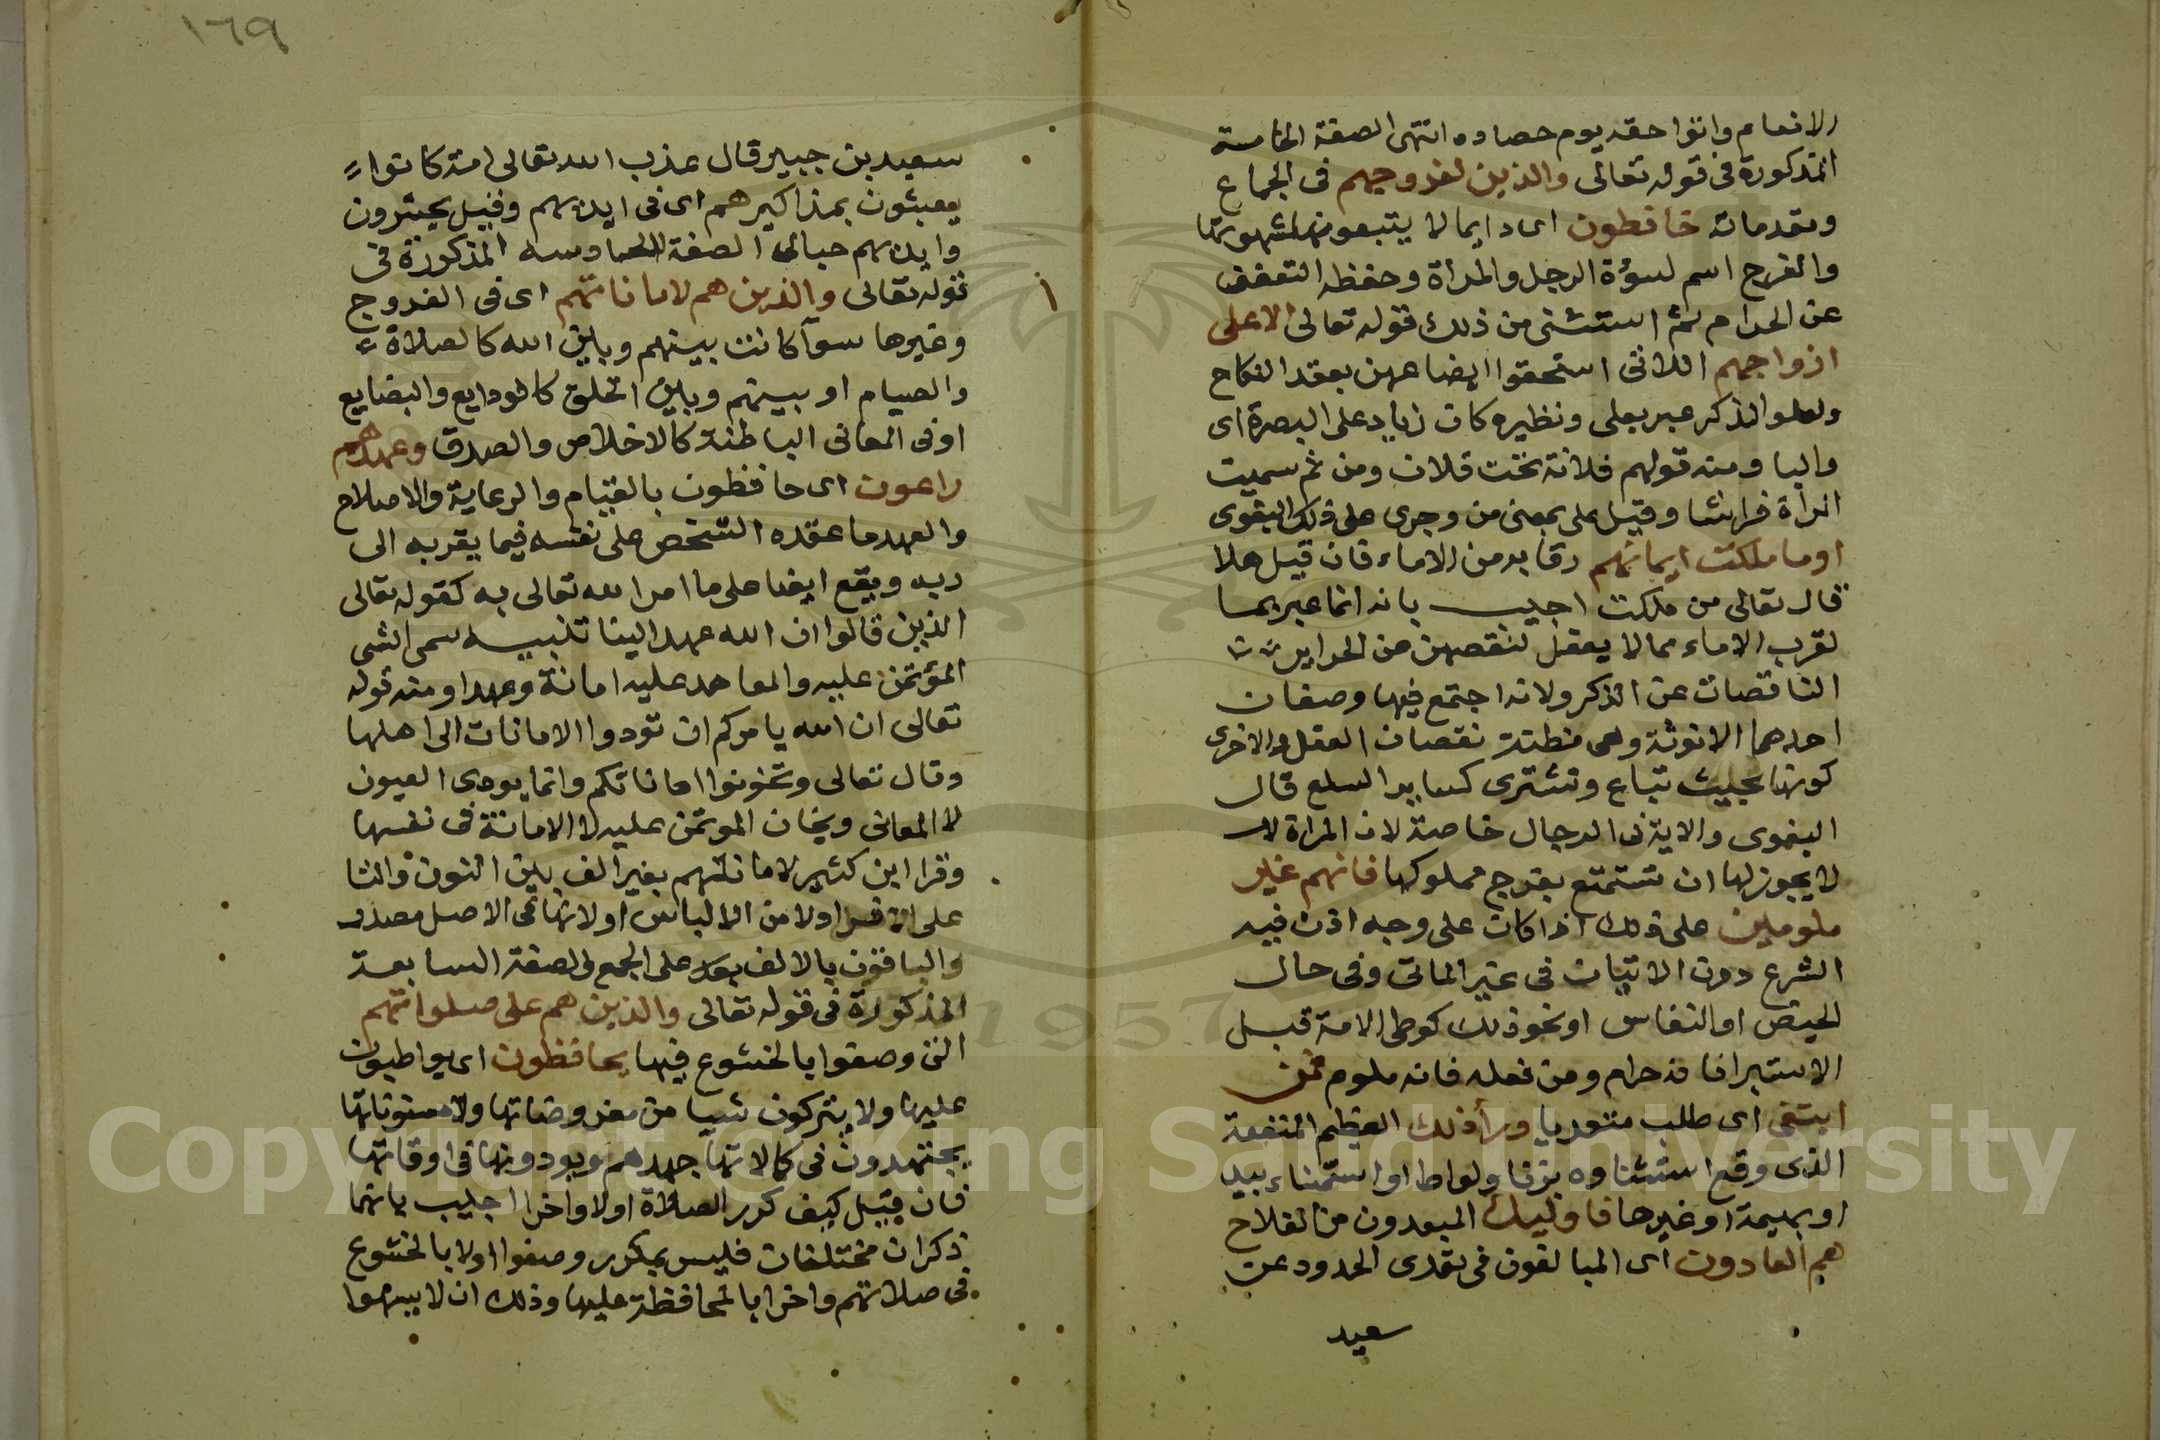 الانعام واتوا حقه يوم حصاده انتهى الصفة الخامسة
المذكورة في قوله تعالى والذين لفروجهم في الجماع
ومقدماته حافظون اى دايما لا يتبعونها شهوتها
والفرج اسم لسوءة الرجل والمرأة وحفظه التعفف
عن الحرام ثم استثنى من ذلك قوله تعالى الا على
ازواجهم اللاتى استحقوا ابضاعهن بعقد النكاح
ولعلو الذكر عبر بعلى ونظيره كان زياد على البصرة اى
واليا ومنه قولهم فلانة تحت فلان ومن ثم سميت
المرأة فراشا وقيل على بمعنى من وجرى على ذلك البغوى
او ما ملكت ايمانهم رقابه من الاماء فان قيل هلا
قال تعالى من ملكت اجيب بانه انما عبر بما
لقرب الاماء مما لا يعقل لنقصهن عن الحراير
الناقصات عن الذكر ولانه اجتمع فيها وصفان
احدهما الانوثة وهى مظنته نقصان العقل والاخرى
كونها بحيث تباع وتشترى كساير السلع قال
البغوى والاية في الرجال خاصة لان المراة لا
لا يجوز لها ان تستمتع بفرج مملوكها فانهم غير
ملومين على ذلك اذا كان على وجه اذن فيه
الشرع دون الاتيان في غير الماتى وفى حال
الحيض او النفاس او نحو ذلك كوطى الامة قبل
الاستبرا فانه حرام ومن فعله فانه ملوم فمن
ابتغى اى طلب متعديا ورأ ذلك العظيم المنفعة
الذى وقع استثناوه بزنا ولواط او استمناء بيد
او بهيمة او غيرها فاوليك المبعدون من الفلاح
هم العادون اى المبالغون في تعدى الحدود عن
سعيد
١٦٩
سعيد بن جبير قال عذب الله تعالى امة كانوا
يعبثون بمذاكيرهم اى في ايديهم وقيل يحشرون
وايديهم حبالى الصفة السادسه المذكورة في
قوله تعالى والذين هم لاماناتهم اى في الفروج
وغيرها سوآ كانت بينهم وبين الله كالصلاة
والصيام او بينهم وبين الخلق كالودايع والبضايع
او في المعانى الباطنة كالاخلاص والصدق وعهدهم
راعون اى حافظون بالقيام والرعاية والاصلاح
والعهد ما عقده الشخص على نفسه فيما يقربه الى
ربه ويقع ايضا على ما امر الله تعالى به كقوله تعالى
الذين قالوا ان الله عهد الينا تنبيه سمى الشى
المؤتمن عليه والمعاهد عليه امانة وعهدا ومنه قوله
تعالى ان الله يامركم ان تودوا الامانات الى اهلها
وقال تعالى وتخونوا اماناتكم وانما يودى العيون
لا المعانى ويخان الموتمن عليه لا الامانة في نفسها
وقرا ابن كثير لامانتهم بغير الف بين النون والتا
على الافراد لامن الالباس او لانها في الاصل مصدر
والباقون بالالف على الجمع الصفة السابعة
المذكورة في قوله تعالى والذين هم على صلواتهم
التى وصفوا بالخشوع فيها يحافظون اى يواظبون
عليها ولا يتركون شيا من مفروضاتها ولا مسنوناتها
يجتهدون في كمالاتها جهدهم ويودونها في اوقاتها
فان قيل كيف كرر الصلاة اولا واخرا اجيب بانهما
ذكران مختلفان فليس بمكرر وصفوا اولا بالخشوع
في صلاتهم واخرا بالمحافظة عليها وذلك ان لا يسهوا